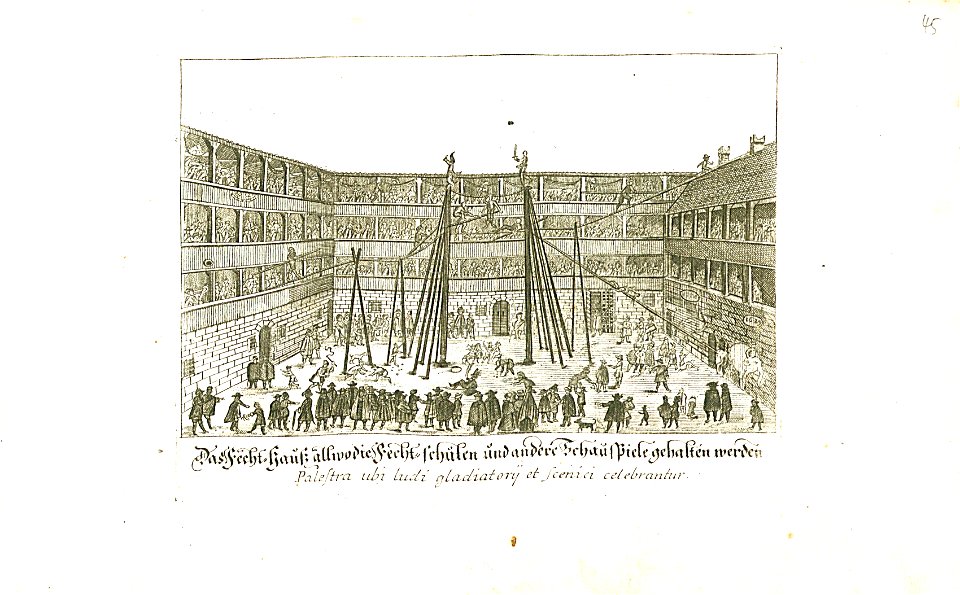 45
Das Fecht-Hauß allwo die Fecht-schulen und andere Schauspiele gehalten werden
Palestra ubi ludi gladiatorij et scenici celebrantur.